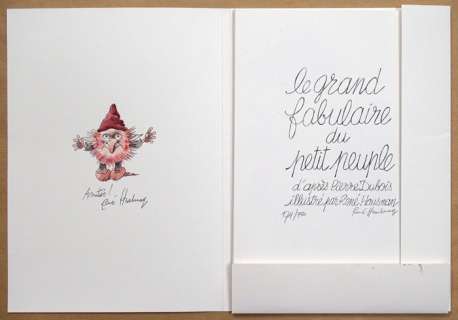 René Hausman
le grand
fabulaire
du
petit peuple
d'après Pierre Dubois
illustré par René Hausman
René Hausman